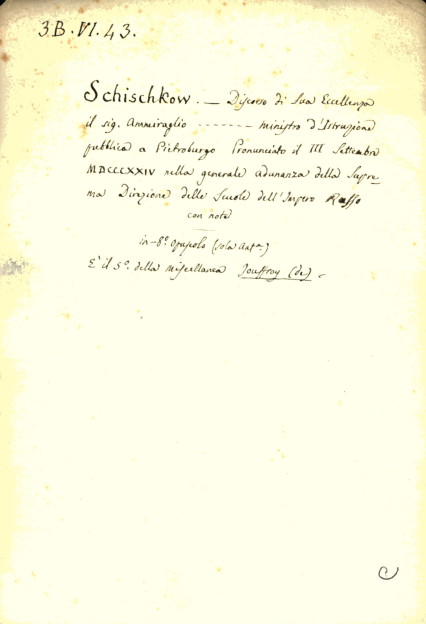 3.B.VI.43.
Schischkow. — Discorso di Sua Eccellenza
il sig. Ammiraglio - - - - - - - ministro d'Istruzione
pubblica a Pietroburgo Pronunciato il III Settembre
MDCCCXXIV nella generale adunanza della Supre-
ma Direzione delle Scuole dell'Impero Russo
con note
in-8º. opuscolo (sola
È il 5º. della miscellanea Jouffroy (de) -